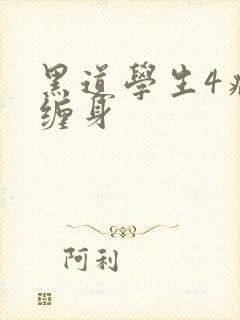 黑道學生4
缠身
阿利